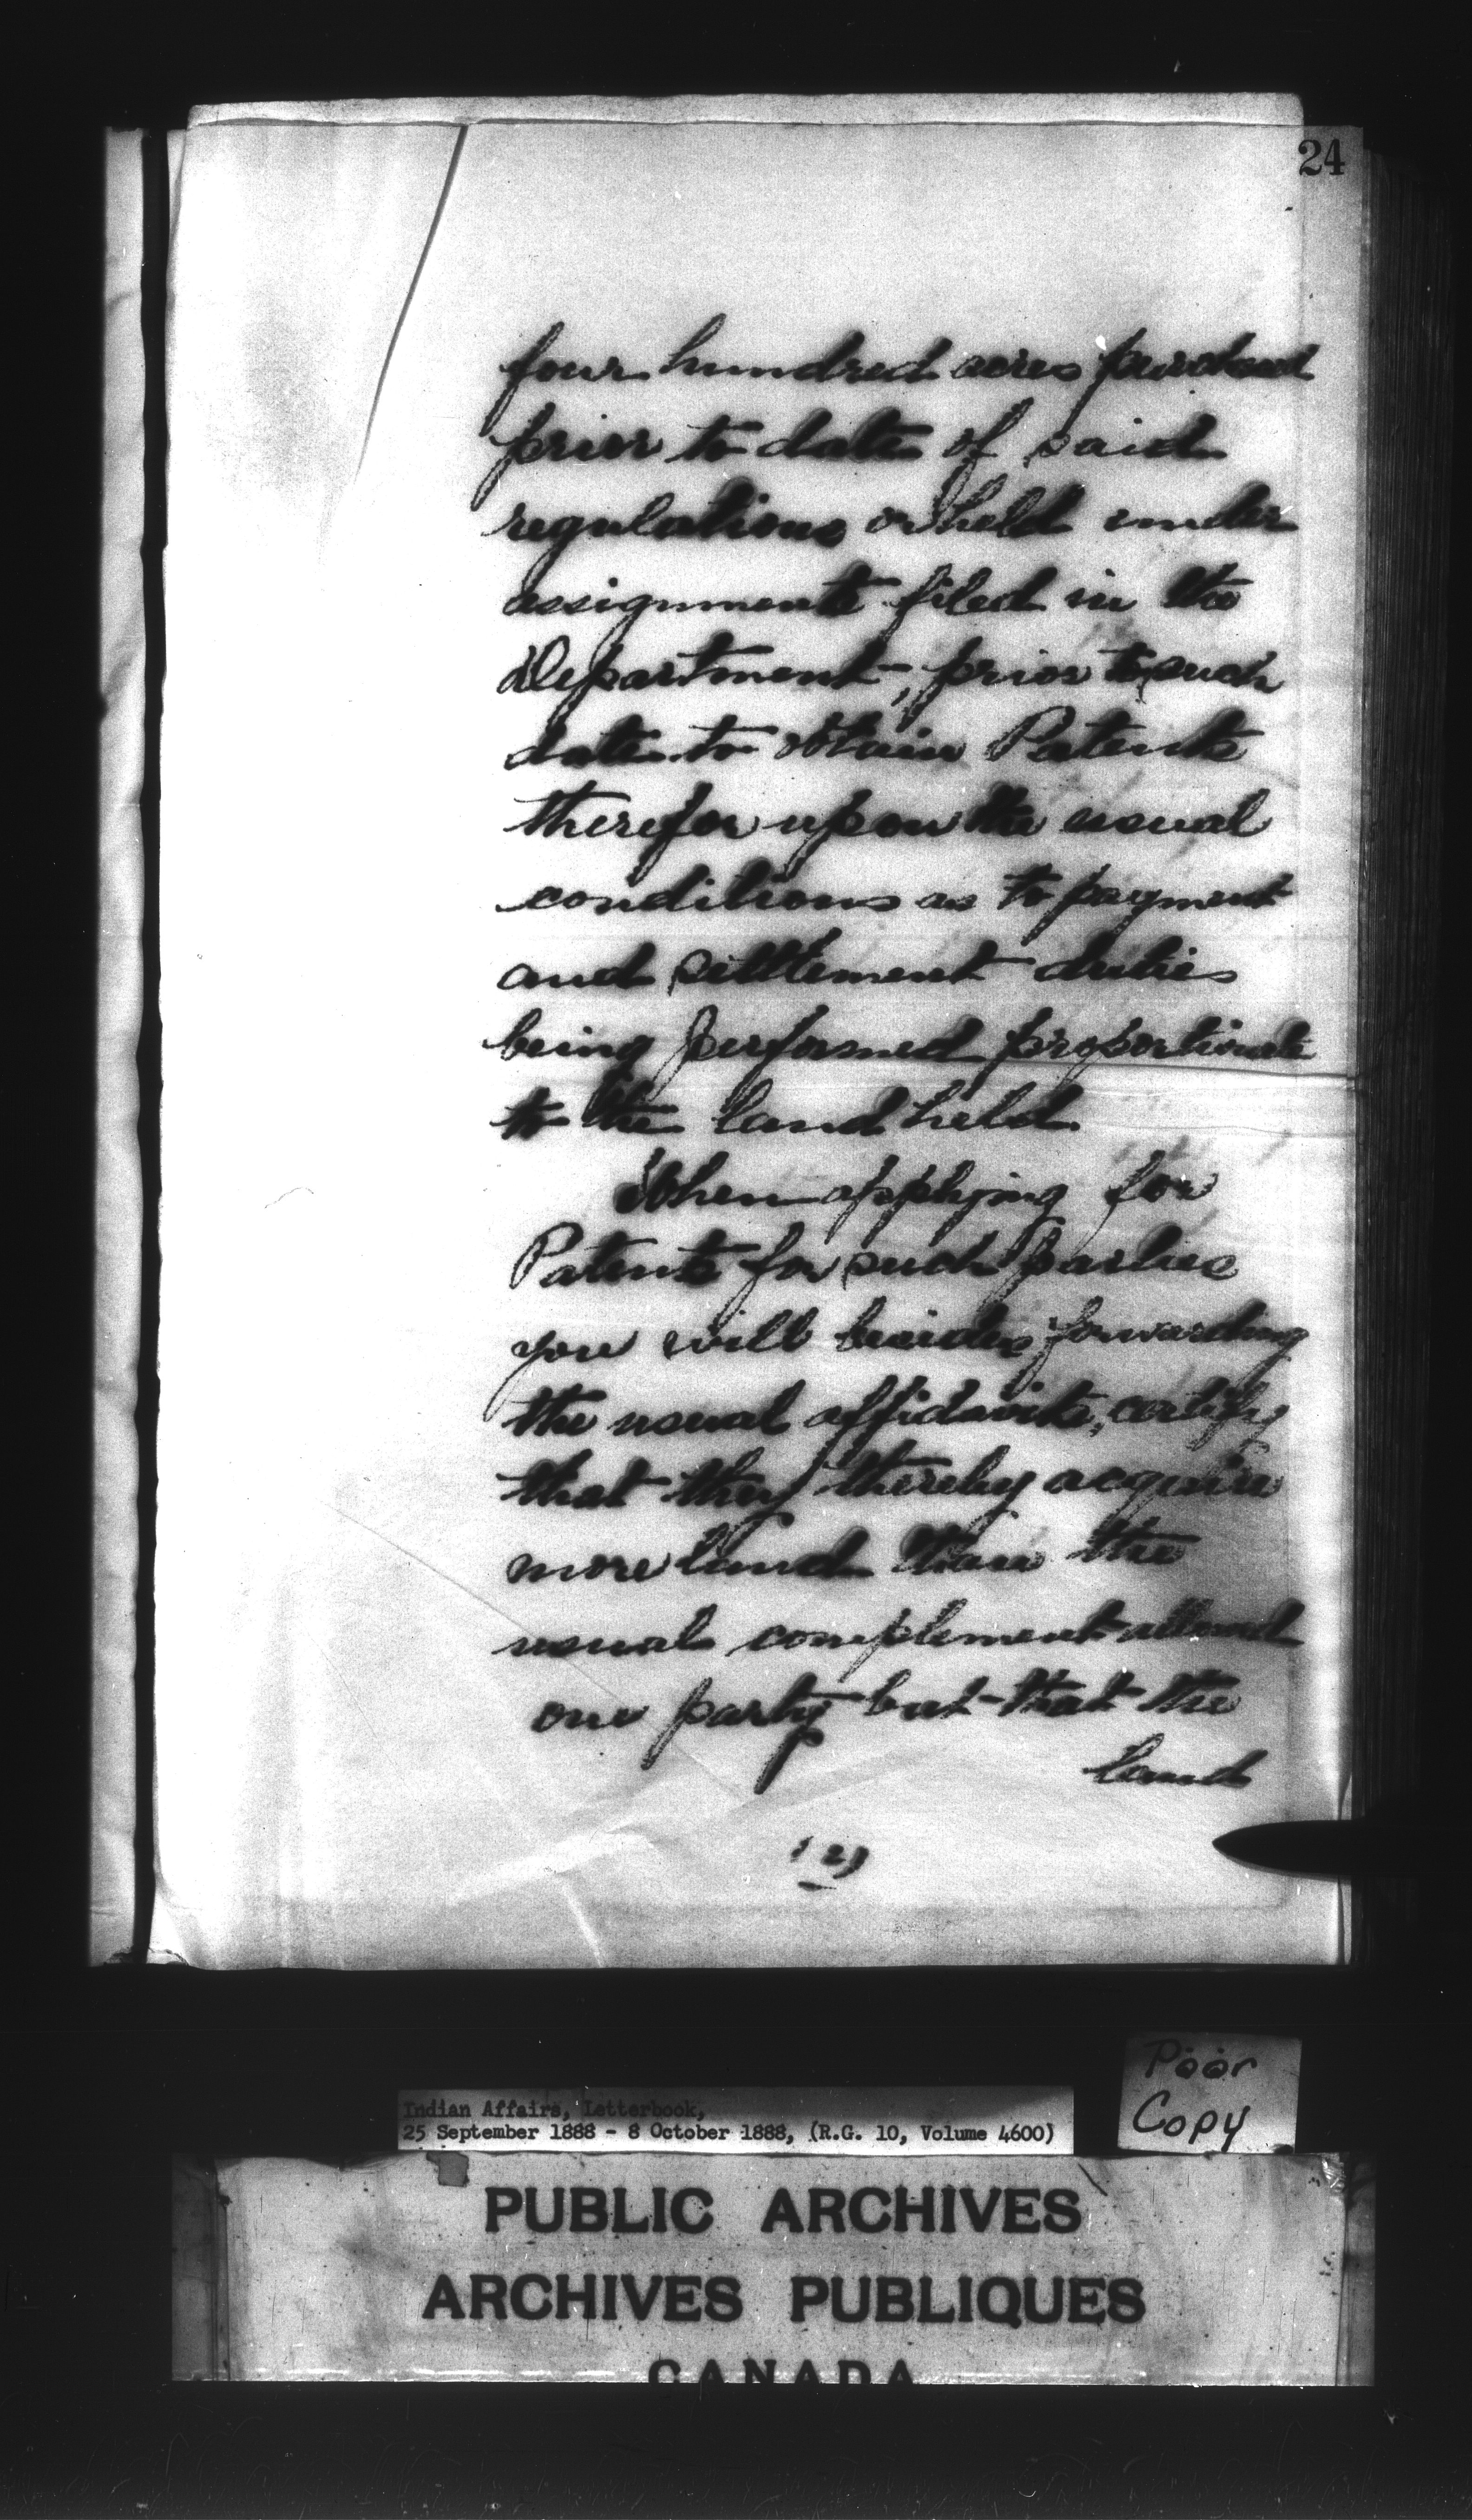 24
four hundred acres purchased
prior to date of said
regulations or held under
assignments filed in the
Department, prior to such
date to obtain Patents
therefor upon the usual
conditions as to payment
and settlement duties
being performed proportionate
to the land held.
When applying for
Patents for such parties
you will besides forwarding
the usual affidavits, certify
that they thereby acquire
more land than the
usual complement allowed
one party but that the
land
(2)
Poor
Copy
Indian Affairs, Letterbook,
25 September 1888 - 8 October 1888, (R.G. 10, Volume 4600)
PUBLIC ARCHIVES
ARCHIVES PUBLIQUES
CANADA